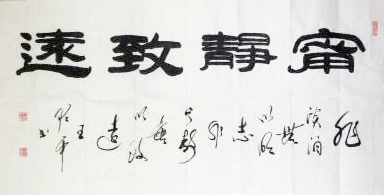 甯靜致遠
非
淡泊
無
以明
志
非
寧靜
無
以致
遠
王
书